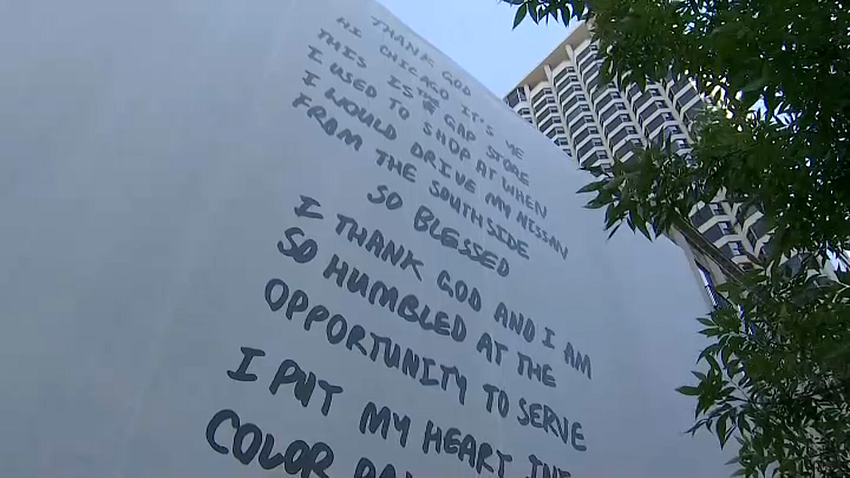 THANK GOD
HI CHICAGO IT'S YE
THIS IS THE GAP STORE
I USED TO SHOP AT WHEN
I WOULD DRIVE MY NISSAN
FROM THE SOUTHSIDE
SO BLESSED
I THANK GOD AND I AM
SO HUMBLED AT THE
OPPORTUNITY TO SERVE
I PUT MY HEART INT
COLOR